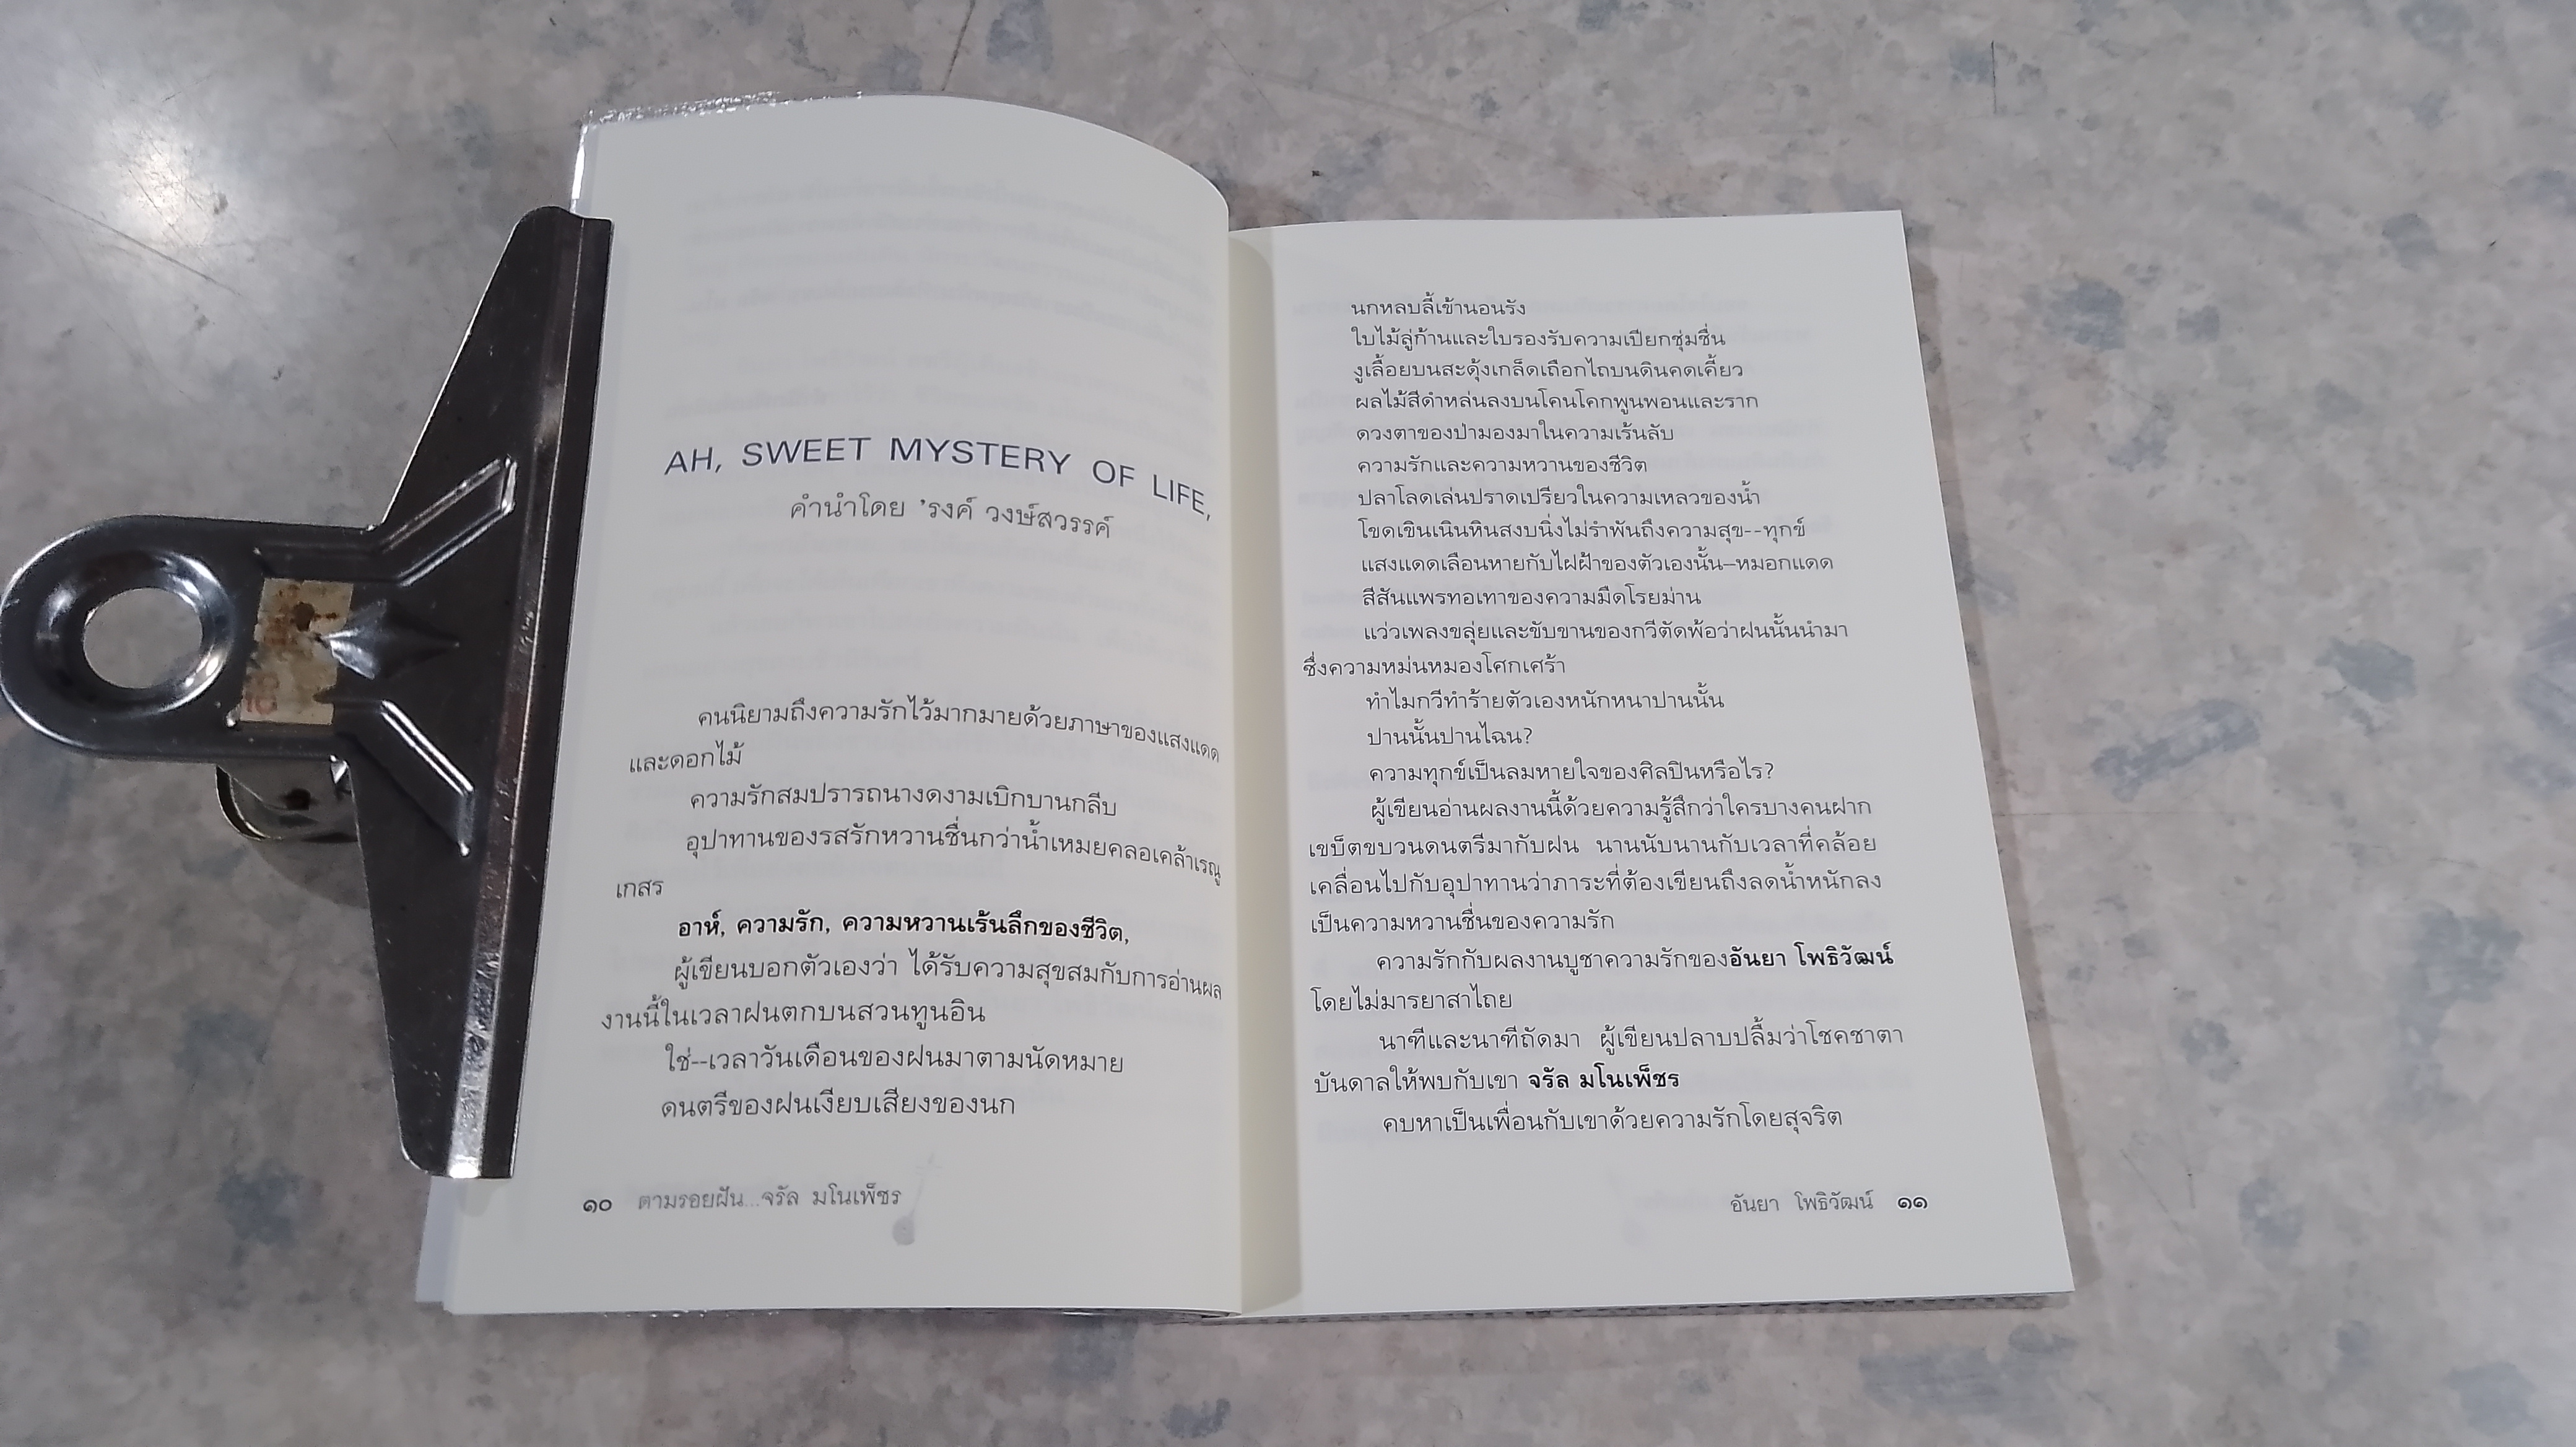 AH, SWEET MYSTERY OF LIFE,
คำนำโดย 'รงค์ วงษ์สวรรค์
คนนิยามถึงความรักไว้มากมายด้วยภาษาของแสงแดด
และดอกไม้
ความรักสมปรารถนางดงามเบิกบานกลีบ
อุปาทานของรสรักหวานชื่นกว่าน้ำเหมยคลอเคล้าเรณู
เกสร
อาห์, ความรัก, ความหวานเร้นลึกของชีวิต,
ผู้เขียนบอกตัวเองว่า ได้รับความสุขสมกับการอ่านผล
งานนี้ในเวลาฝนตกบนสวนทูนอิน
ใช่--เวลาวันเดือนของฝนมาตามนัดหมาย
ดนตรีของฝนเงียบเสียงของนก
๑๐ ตามรอยฝัน...จรัล มโนเพ็ชร
นกหลบลี้เข้านอนรัง
ใบไม้ลู่ก้านและใบรองรับความเปียกชุ่มชื่น
งูเลื้อยบนสะดุ้งเกล็ดเถือกไถบนดินคดเคี้ยว
ผลไม้สีดำหล่นลงบนโคนโคกพูนพอนและราก
ดวงตาของป่ามองมาในความเร้นลับ
ความรักและความหวานของชีวิต
ปลาโลดเล่นปราดเปรียวในความเหลวของน้ำ
โขดเขินเนินหินสงบนิ่งไม่รำพันถึงความสุข--ทุกข์
แสงแดดเลือนหายกับไฝฝ้าของตัวเองนั้น–หมอกแดด
สีสันแพรทอเทาของความมืดโรยม่าน
แว่วเพลงขลุ่ยและขับขานของกวีตัดพ้อว่าฝนนั้นนำมา
ซึ่งความหม่นหมองโศกเศร้า
ทำไมกวีทำร้ายตัวเองหนักหนาปานนั้น
ปานนั้นปานไฉน?
ความทุกข์เป็นลมหายใจของศิลปินหรือไร?
ผู้เขียนอ่านผลงานนี้ด้วยความรู้สึกว่าใครบางคนฝาก
เขบ็ตขบวนดนตรีมากับฝน นานนับนานกับเวลาที่คล้อย
เคลื่อนไปกับอุปาทานว่าภาระที่ต้องเขียนถึงลดน้ำหนักลง
เป็นความหวานชื่นของความรัก
ความรักกับผลงานบูชาความรักของอันยา โพธิวัฒน์
โดยไม่มารยาสาไถย
นาทีและนาทีถัดมา ผู้เขียนปลาบปลื้มว่าโชคชาตา
บันดาลให้พบกับเขา จรัล มโนเพ็ชร
คบหาเป็นเพื่อนกับเขาด้วยความรักโดยสุจริต
อันยา โพธิวัฒน์ ๑๑